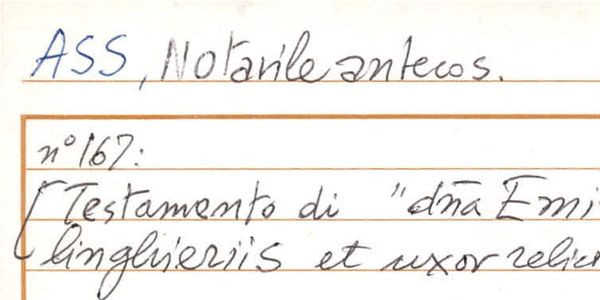 ASS, Notarile antecos.
n° 167:
[Testamento di "dn̄a Emi
linghieriis et uxor relic